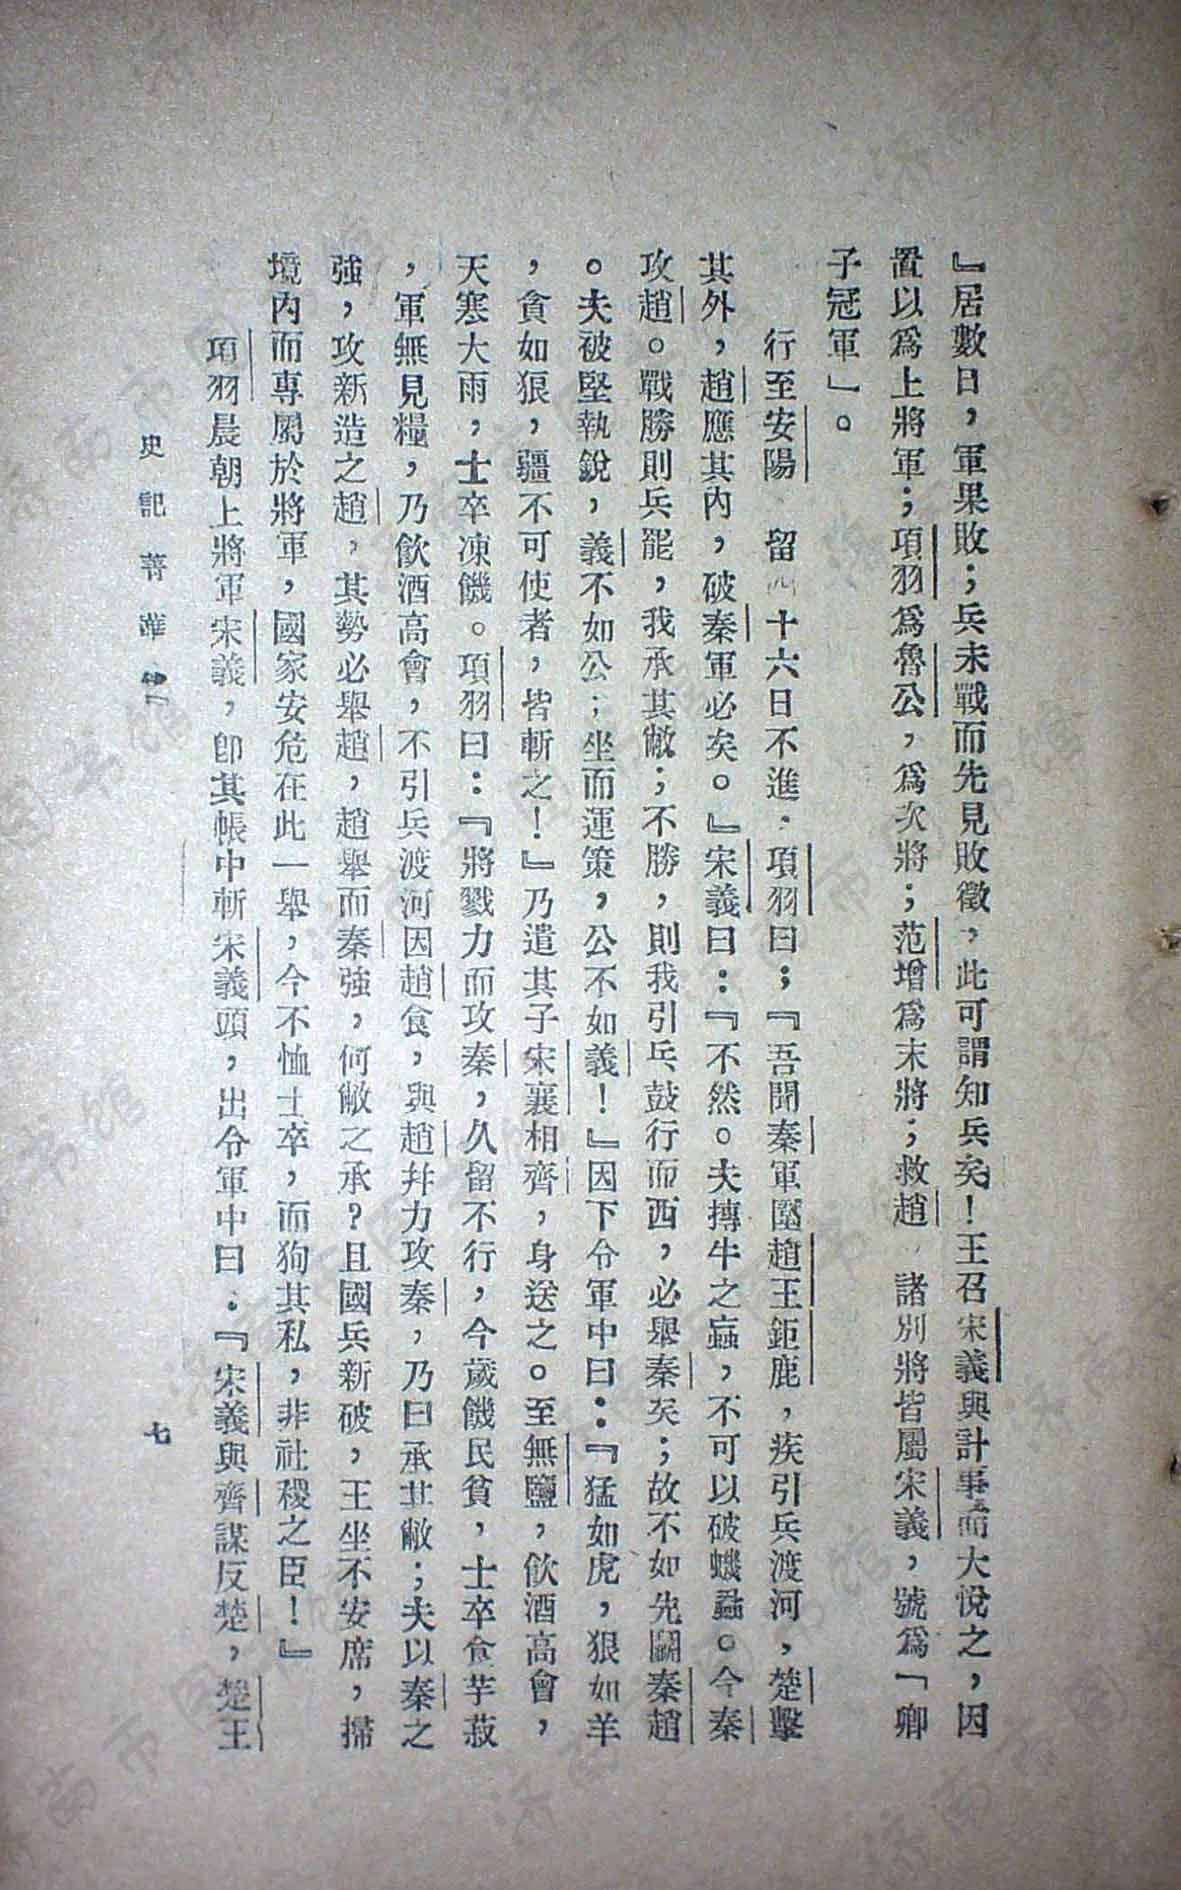 』居數日，軍果敗；兵未戰而先見敗徵，此可謂知兵矣！王召宋義與計事而大悅之，因
置以爲上將軍；項羽爲魯公，爲次將；范增爲末將；救趙 諸別將皆屬宋義，號爲「卿
子冠軍」。
行至安陽 留四十六日不進，項羽曰；『吾聞秦軍圍趙王鉅鹿，疾引兵渡河，楚擊
其外，趙應其內，破秦軍必矣。』宋義曰：『不然。夫搏牛之蝱，不可以破蟣蝨。今秦
攻趙。戰勝則兵罷，我承其敝；不勝，則我引兵鼓行而西，必舉秦矣；故不如先鬭秦趙
。夫被堅執銳，義不如公；坐而運策，公不如義！』因下令軍中曰：『猛如虎，狠如羊
，貪如狼，疆不可使者，皆斬之！』乃遣其子宋襄相齊，身送之。至無鹽，飮酒高會，
天寒大雨，士卒凍饑。項羽曰：『將戮力而攻秦，久留不行，今歲饑民貧，士卒食芋菽
，軍無見糧，乃飮酒高會，不引兵渡河因趙食，與趙幷力攻秦，乃曰承其敝；夫以秦之
強，攻新造之趙，其勢必舉趙，趙舉而秦強，何敝之承？且國兵新破，王坐不安席，掃
境內而專屬於將軍，國家安危在此一舉，今不恤士卒，而狥其私，非社稷之臣！』
項羽晨朝上將軍宋義，卽其帳中斬宋義頭，出令軍中曰：『宋義與齊謀反楚，楚王
史記菁華
七